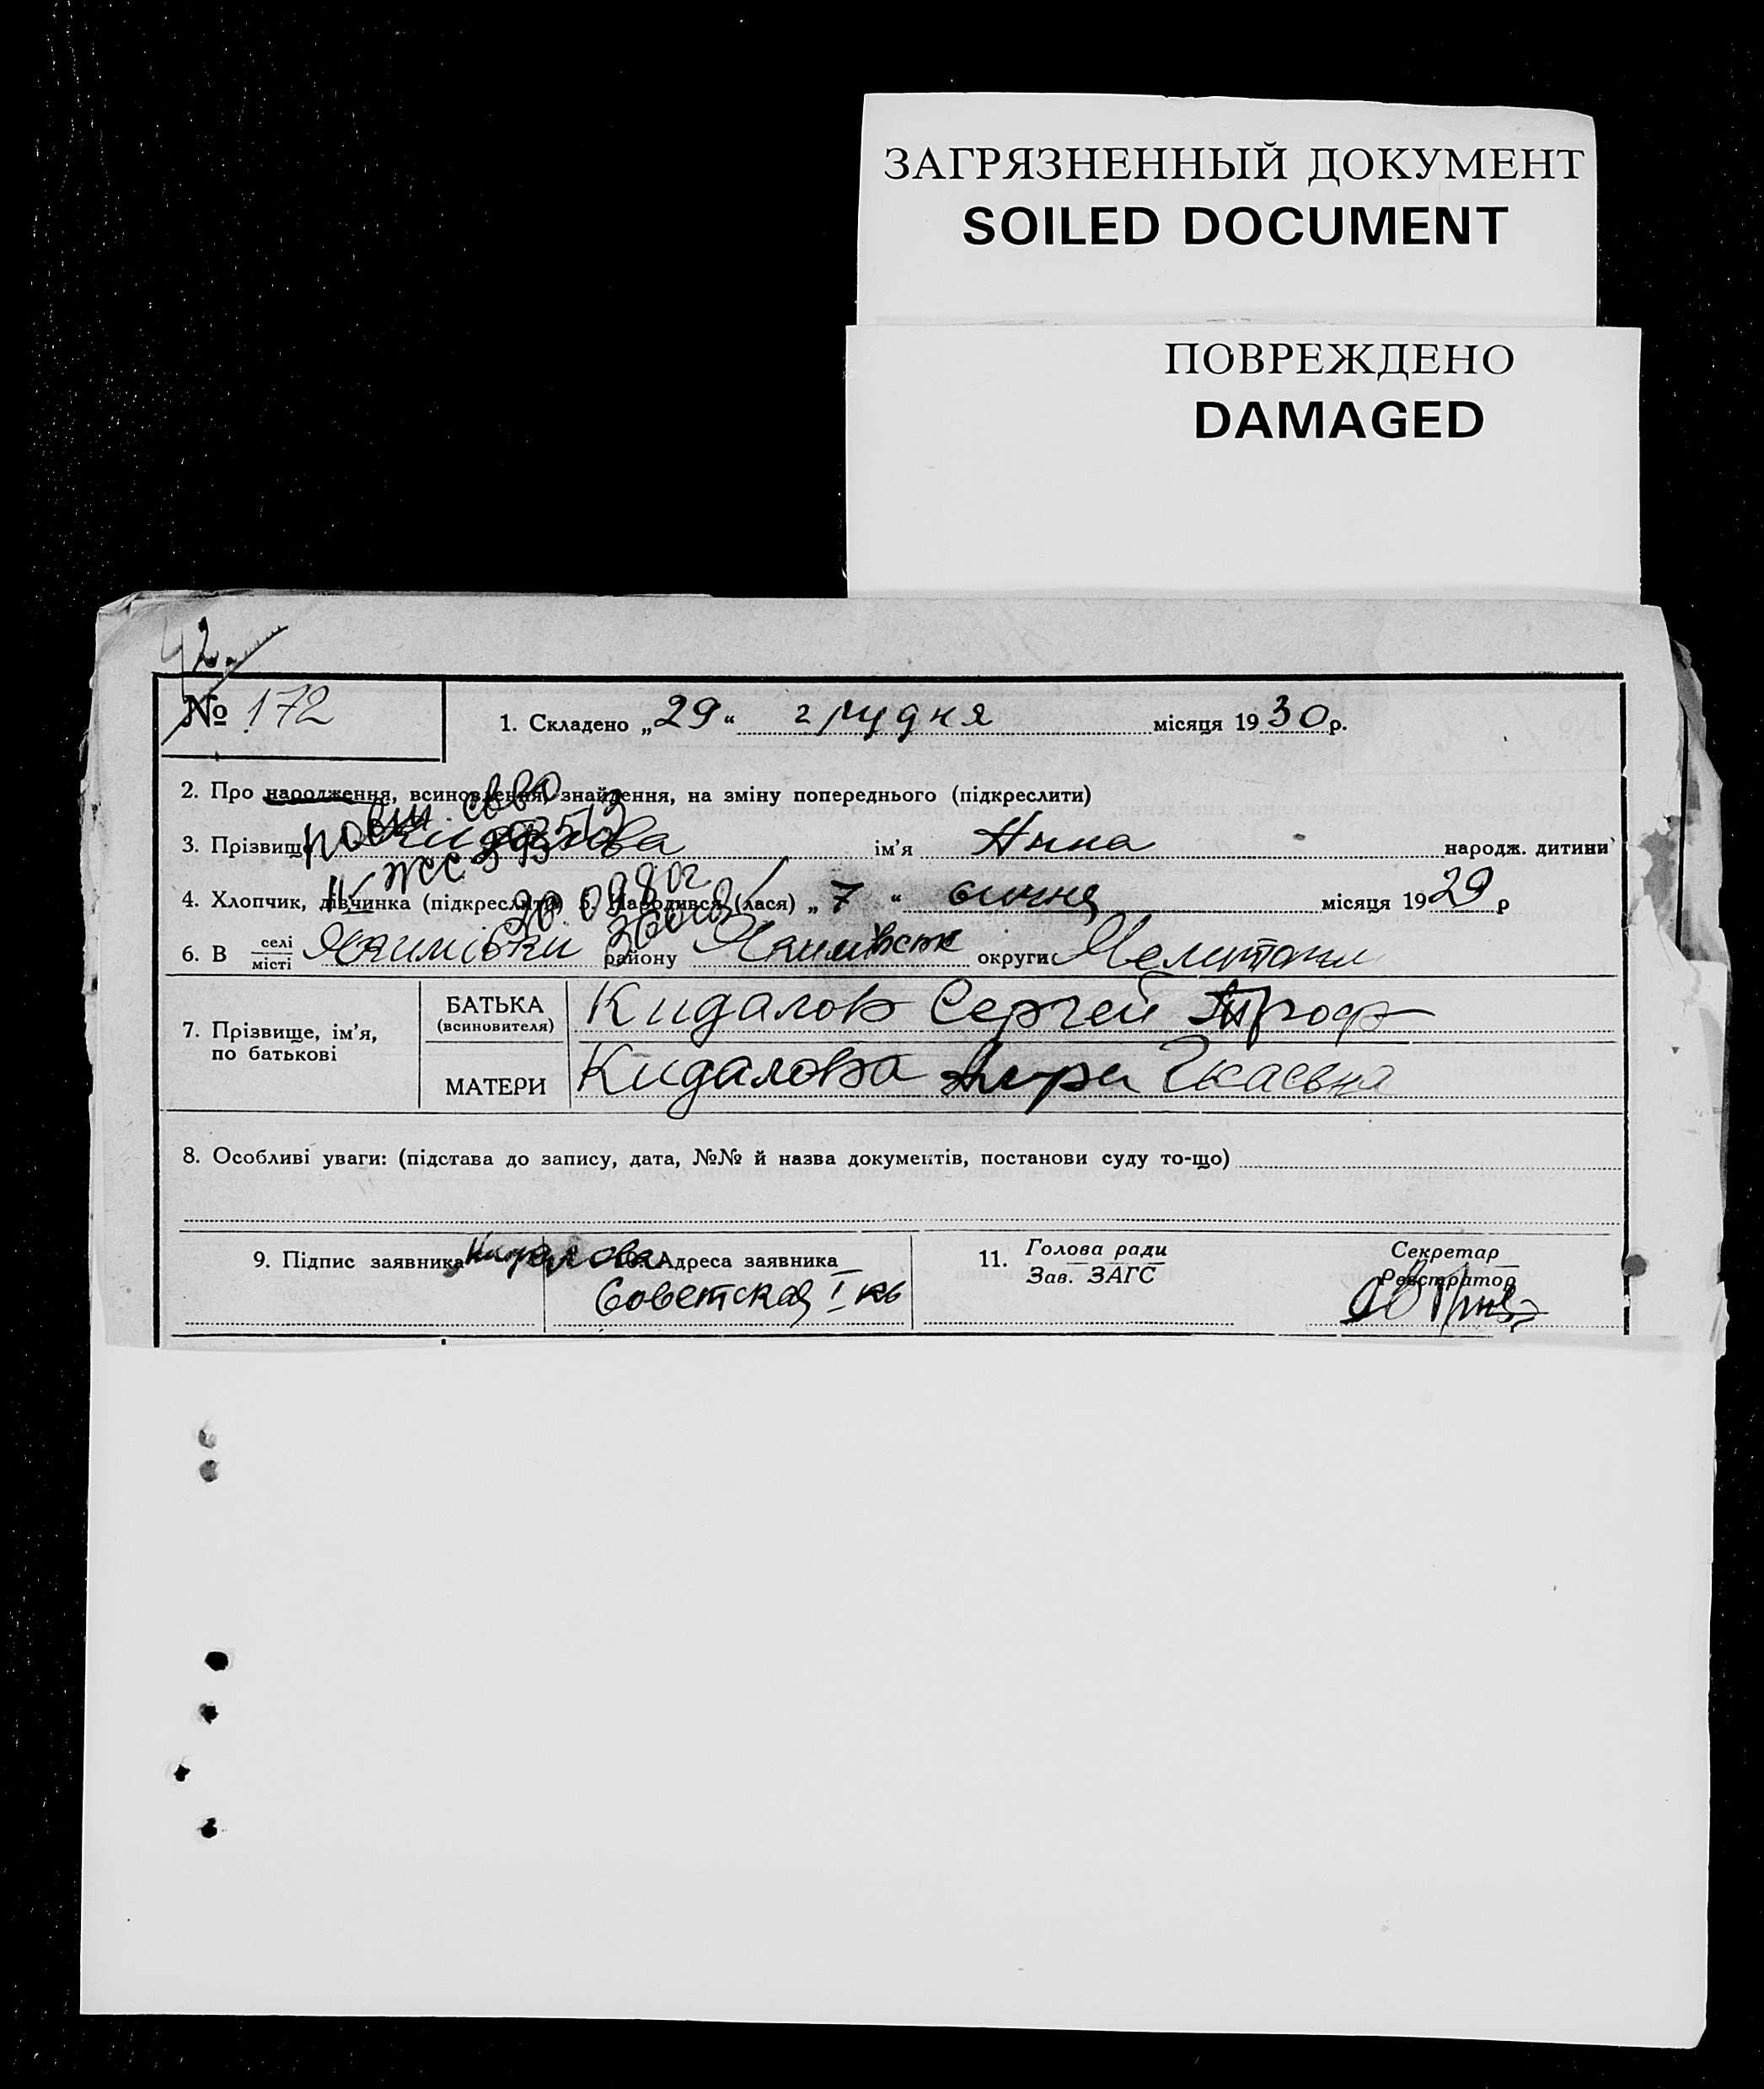 ЗАГРЯЗНЕННЫЙ ДОКУМЕНТ
SOILED DOCUMENT
ПОВРЕЖДЕНО
DAMAGED
42.
№ 172
1. Складено „29“ грудня місяця 1930 р.
2. Про народження, всиновлення, знайдення, на зміну попереднього (підкреслити)
3. Прізвище Кидалова ім’я Нина народж. дитини
4. Хлопчик, дівчинка (підкреслити) 5. Народився (лася) „7“ січня місяця 1929 р
6. В селі місті Якимівки району Якимівськ округи Мелитопил
7. Прізвище, ім’я, по батькові
БАТЬКА (всиновителя) Кидалов Сергей Троф
МАТЕРИ Кидалова
8. Особливі уваги: (підстава до запису, дата, №№ й назва документів, постанови суду то-що)
9. Підпис заявника Кидалова
Адреса заявника
Советская I кв
11. Голова ради
Зав. ЗАГС
Секретар
Реєстратор